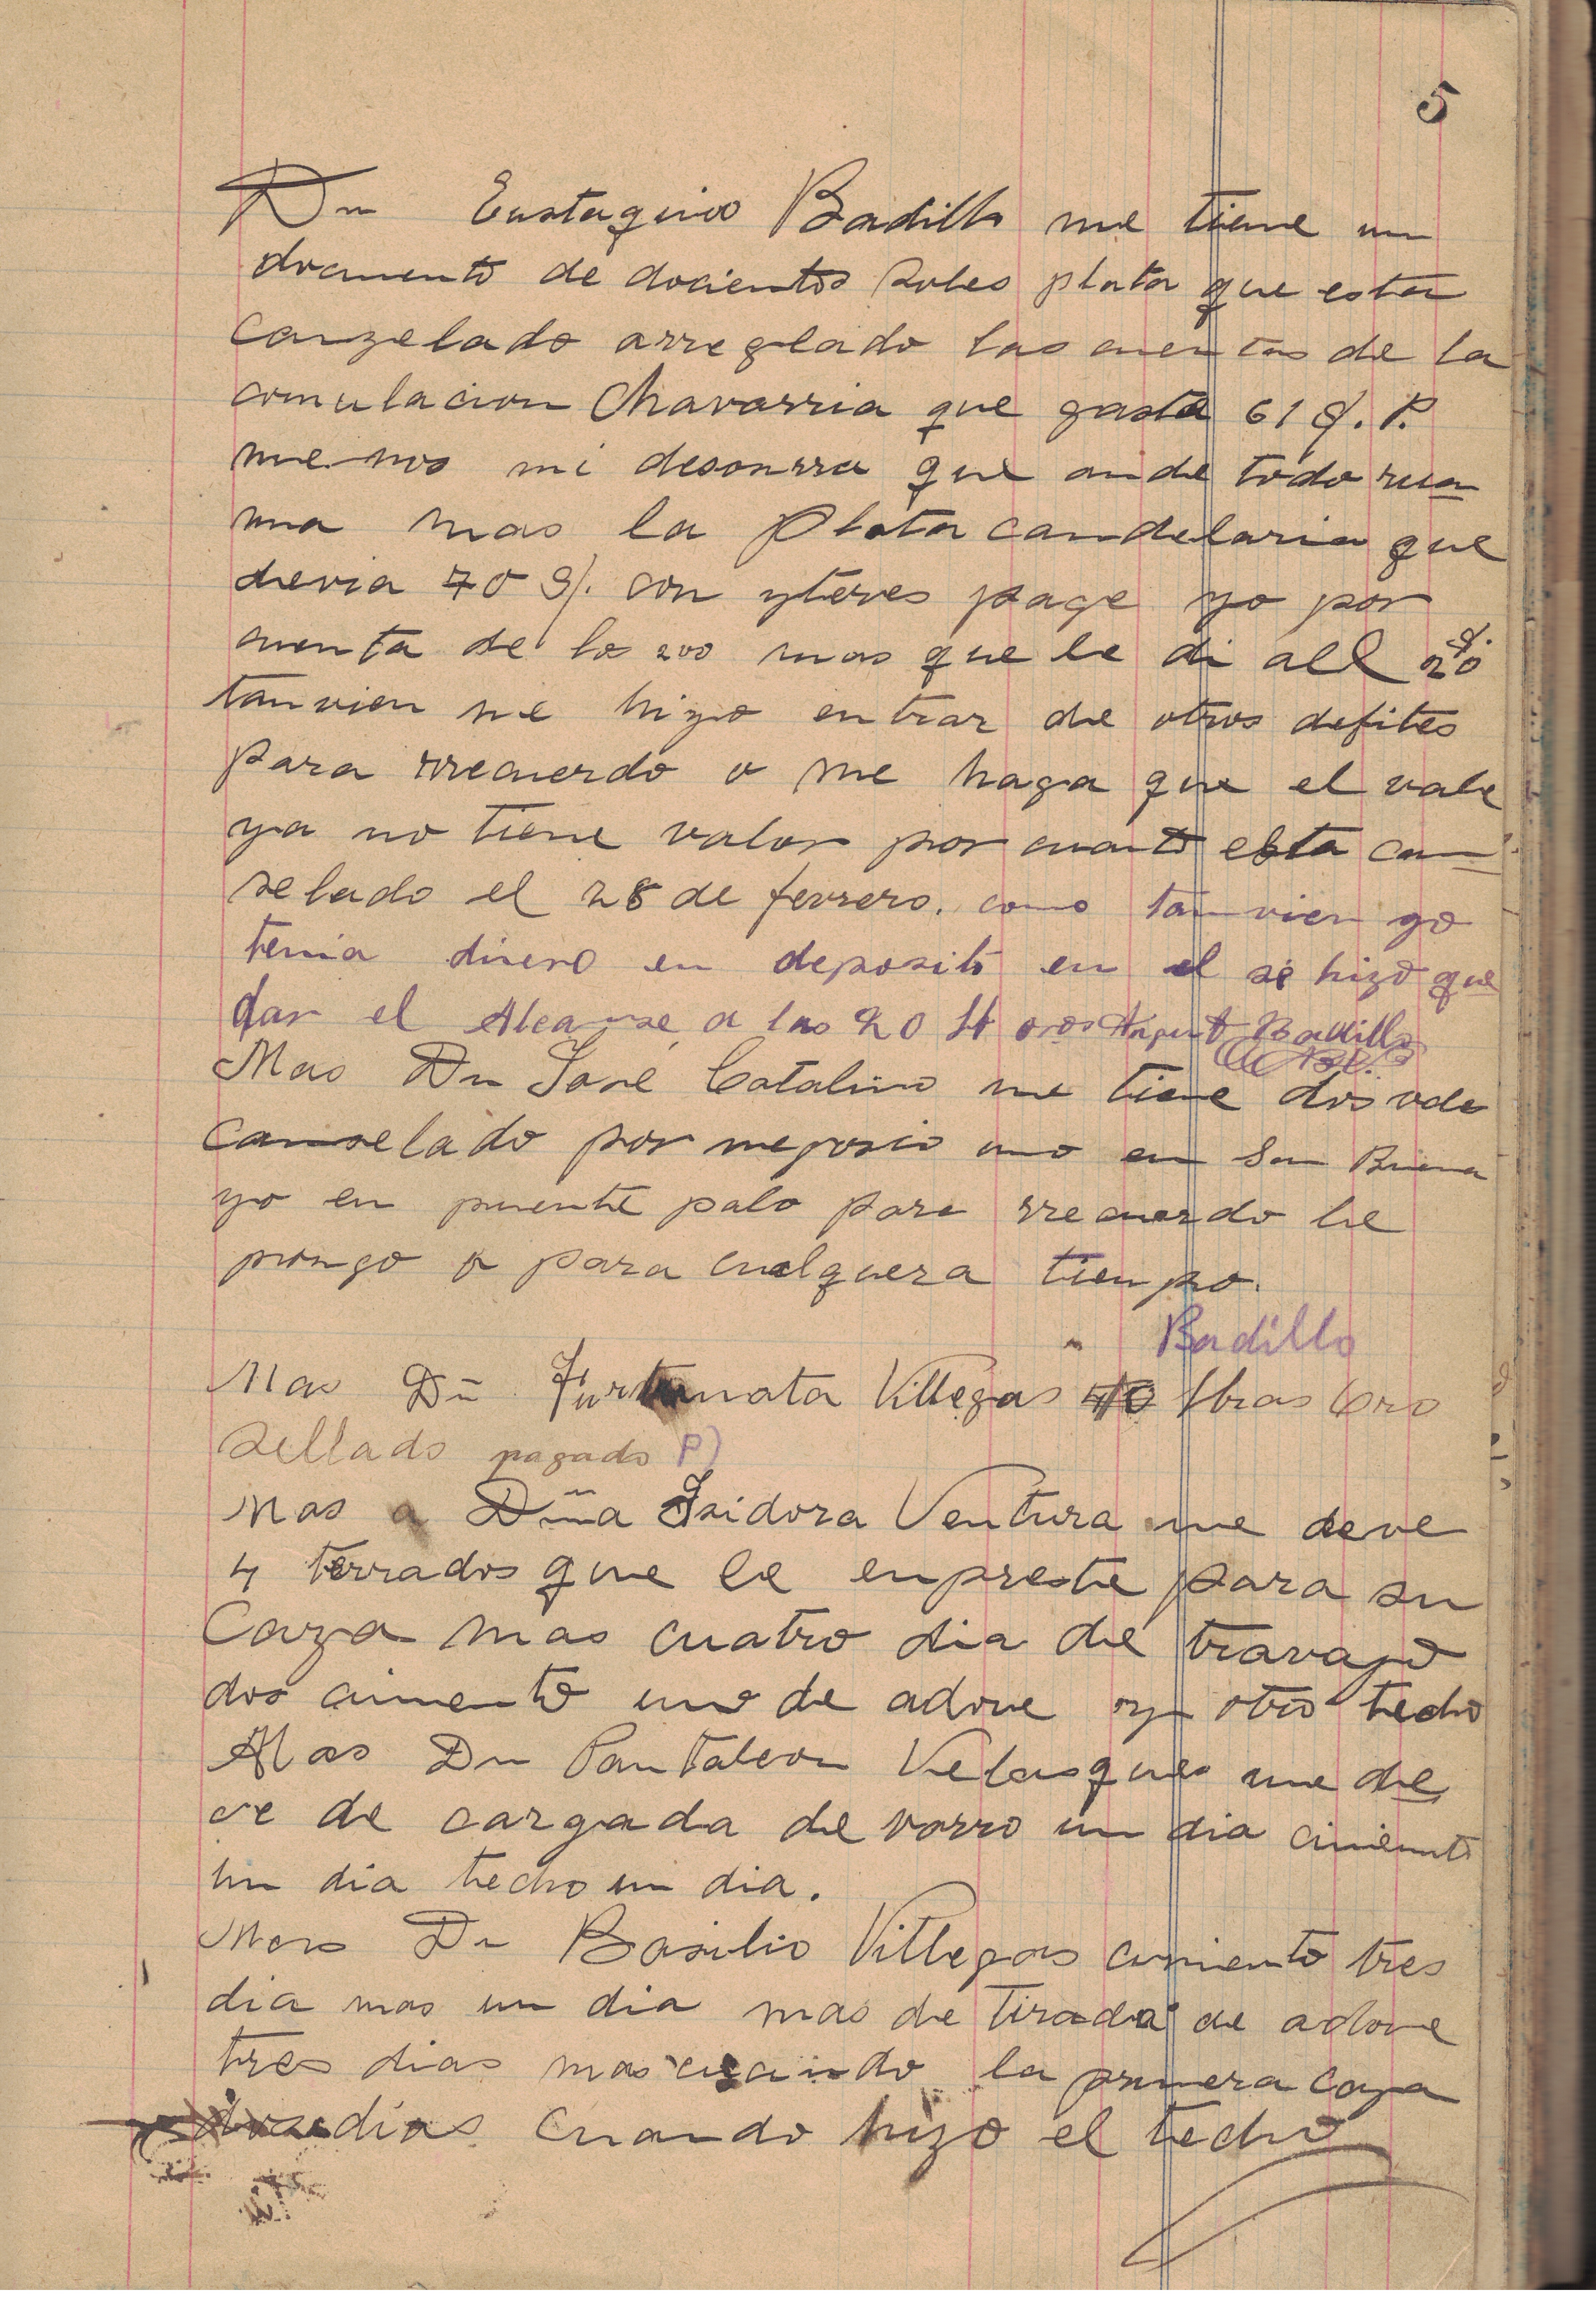 5
Dn Eustaquio Badillo me tiene un
documento de docientos soles plata que esta
canzelado arreglado las cuentas de la
comulacion Chavarria que gasta 61 S. P.
me nos mi desonrra que ande todo
una mas la Plata candelaria que
devia 70 S/. con yteres page yo por
cuenta de los 200 mas que le di all 20 S.
tanvien me hizo entrar de otros defites
para rrecuerdo o me haga que el vale
ya no tiene valor por cuanto esta can
selado el 28 de ferrero. como tan vien yo
tenia dinero en deposito en el se hizo que
dar el Alcanse a las 20 Badillo
Mas Dn José Catalino me tiene dos vde
canselado por negosio uno en San Buena
yo en puente palo para rrecuerdo le
pongo o para cualquera tienpo.
Badillo
Mas Dñ Furtunata Villegas 40 lbras Oro
Sellado pagado P)
Mas a Dñna Isidora Ventura me deve
4 terrados que le enpreste para su
Caza mas cuatro dia de travajo
dos cimento uno de adove y otro techo
Mas Dn Pantaleon Velasques me de
ve de cargada de varro un dia ciniento
un dia techo un dia.
Mas Dn Basilio Villegas cimiento tres
dia mas un dia mas de tirada de adove
tres dias mas cuando la primera caza
dias cuando hizo el techo